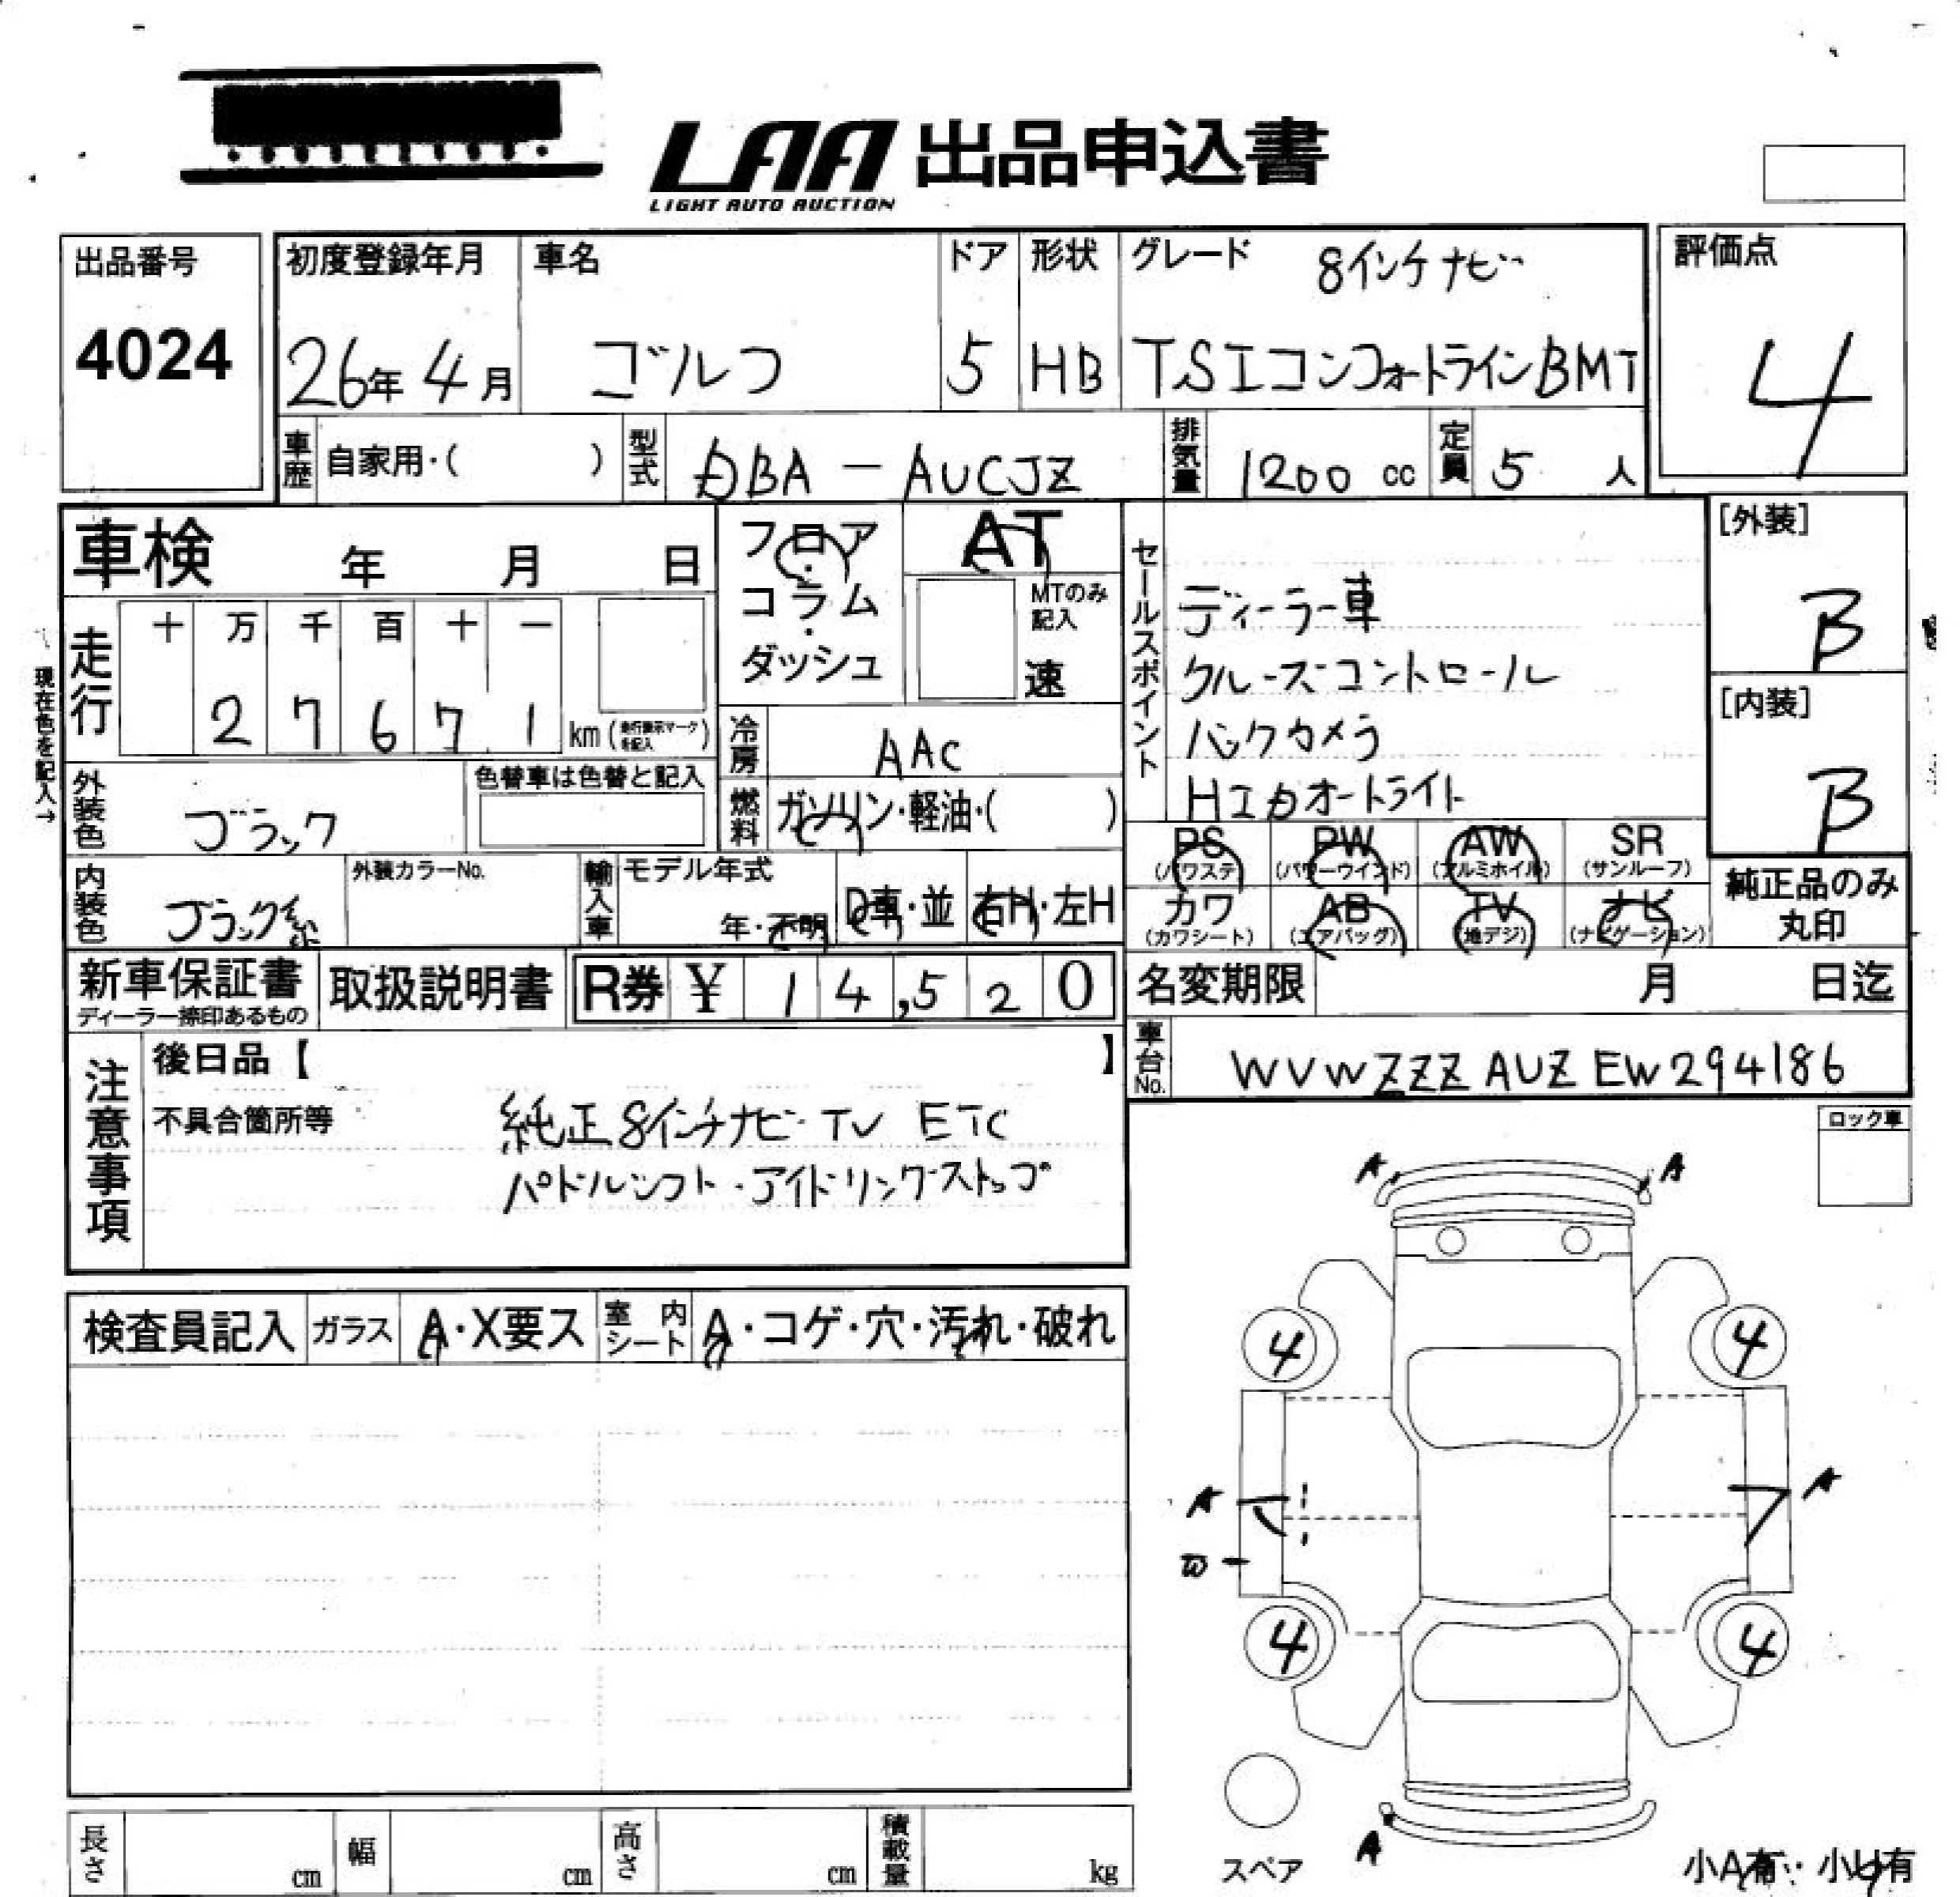 LAA 出品申込書
LIGHT AUTO AUCTION
出品番号
4024
初度登録年月
26年 4月
車名
ゴルフ
ドア
5
形状
HB
グレード 8インチナビ
TSIコンフォートラインBMT
評価点
4
車歴 自家用・( )
型式 DBA - AUCJZ
排気量 1200 cc
定員 5 人
車検 年 月 日
フロア・コラム・ダッシュ
AT
MTのみ記入
速
走行
十 万 千 百 十 一
2 7 6 7 1 km (走行表示マークを記入)
現在色を記入→
冷房 AAC
燃料 ガソリン・軽油・( )
外装色 ブラック
色替車は色替と記入
内装色 ブラック系
外装カラーNo.
輸入車 モデル年式
年・不明
D車・並
右H・左H
セールスポイント
ディーラー車
クルーズコントロール
バックカメラ
HIDオートライト
[外装]
B
[内装]
B
PS (パワステ)
PW (パワーウインド)
AW (アルミホイル)
SR (サンルーフ)
カワ (カワシート)
AB (エアバッグ)
TV (地デジ)
ナビ (ナビゲーション)
純正品のみ
丸印
新車保証書
ディーラー捺印あるもの
取扱説明書
R券 ¥ 14,520
名変期限 月 日迄
車台No. WVWZZZAUZEW294186
注意事項
後日品【 】
不具合箇所等
純正8インチナビ・TV ETC
パドルシフト・アイドリングストップ
ロック車
A A
4 4
A A
W
4 4
A
検査員記入
ガラス A・X要ス
室内シート A・コゲ・穴・汚れ・破れ
長さ cm
幅 cm
高さ cm
積載量 kg
スペア
小A有・小U有